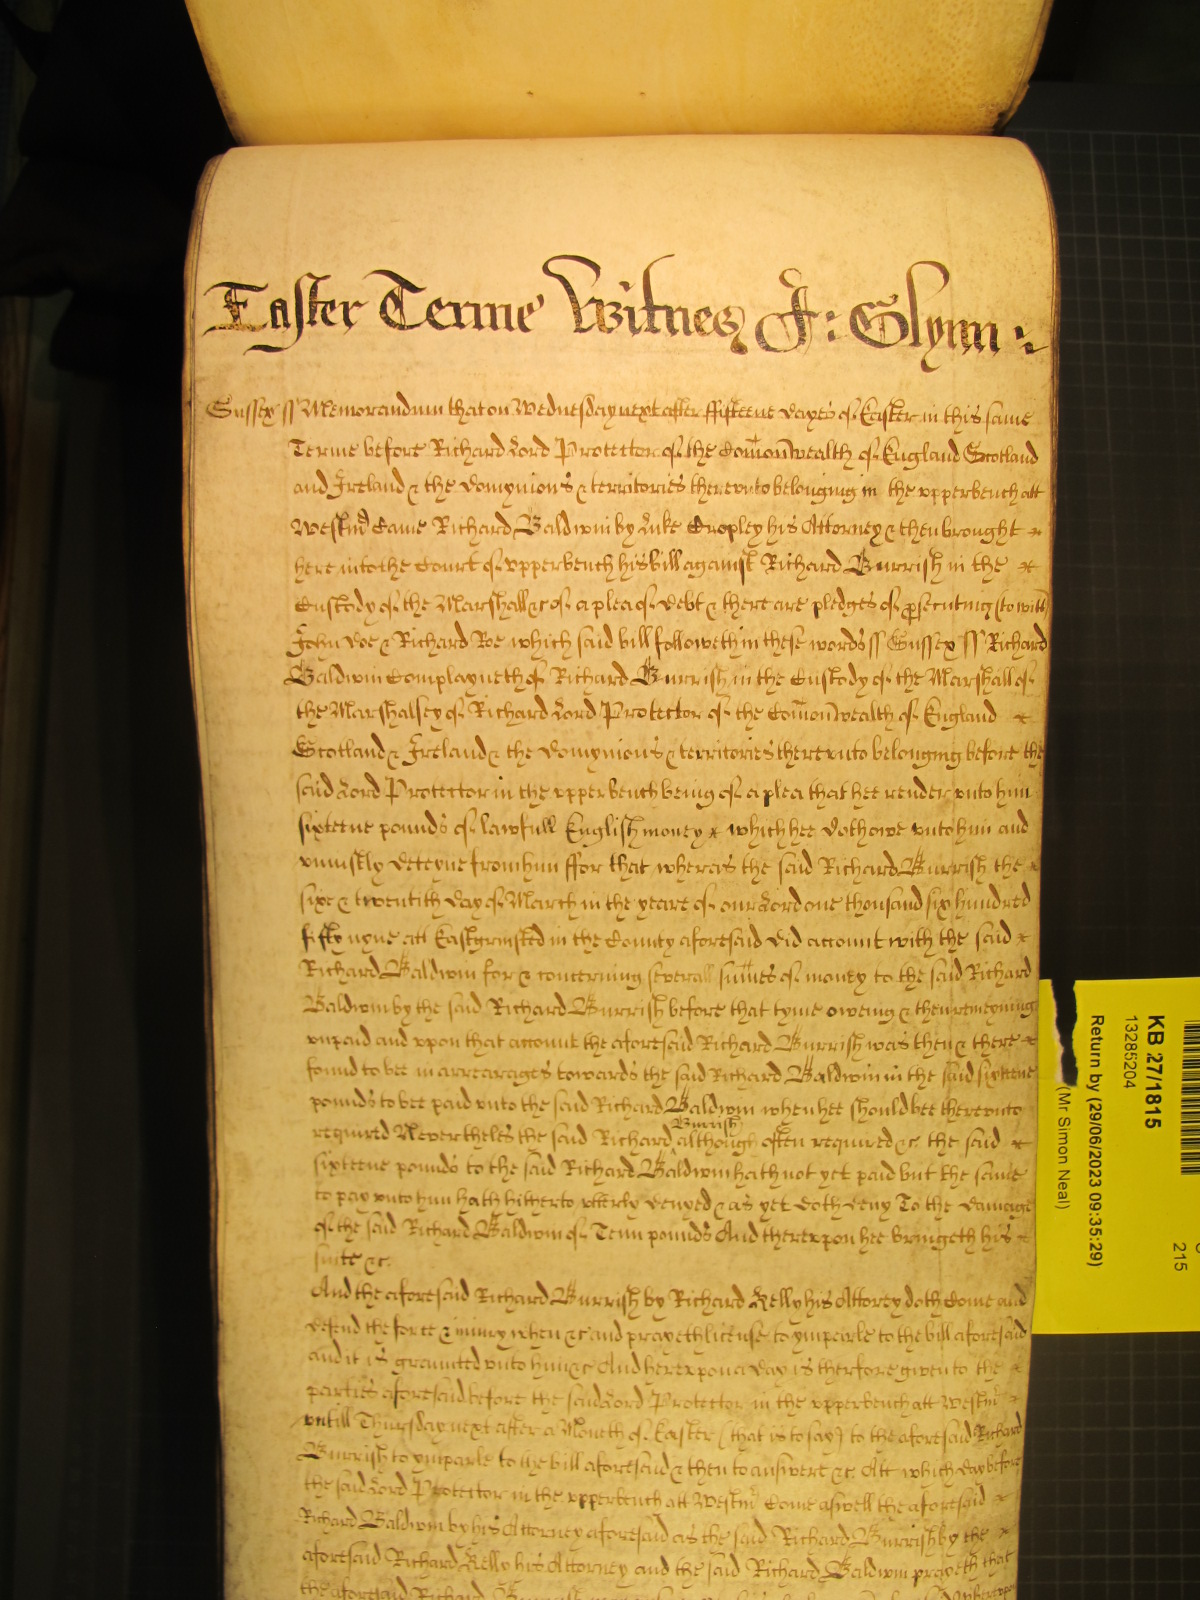 Easter Terme Witnes J: Glynn :
Sussex ss Memorandum that on Wednesday next after fifteene dayes of Easter in this same
Terme before Richard Lord Protector of the Com̄onwealth of England Scotland
and Ireland & the Domynions & territories therevnto belonging in the vpperbench att
Westmr Came Richard Baldwin by Luke Cropley his Attorney & then brought
here into the Court of vpperbench his bill against Richard Burrish in the
Custody of the Marshall &c of a plea of debt & there are pledges of prosecuting (to witt)
John Doe & Richard Roe which said bill followeth in these words ss Sussex ss Richard
Baldwin Complayneth of Richard Burrish in the Custody of the Marshall of
the Marshalsey of Richard Lord Protector of the Com̄onwealth of England
Scotland & Ireland & the Domynions & territories therevnto belonging before the
said Lord Protector in the vpper bench being of a plea that hee render vnto him
sixteene pounds of lawfull English money which hee doth owe vnto him and
vniustly deteyne from him ffor that wheras the said Richard Burrish the
sixe & twentith day of March in the yeare of our Lord one thousand six hundred
fifty nyne att Eastgrinsted in the County aforesaid did account with the said
Richard Baldwin for & concerning severall sum̄es of money to the said Richard
Baldwin by the said Richard Burrish before that tyme oweing & then remeyning
vnpaid and vpon that account the aforesaid Richard Burrish was then & there
found to bee in arrearages towards the said Richard Baldwin in the said sixteene
pounds to bee paid vnto the said Richard Baldwin when hee should bee therevnto
Burrish
required Nevertheles the said Richard although often required &c the said
sixteene pounds to the said Richard Baldwin hath not yet paid but the same
to pay vnto him hath hitherto vtterly denyed & as yet doth deny To the damage
of the said Richard Baldwin of Tenn pounds And therevpon hee bringeth his
suite &c.
And the aforesaid Richard Burrish by Richard Kelly his Attorey doth Come and
defend the force & iniury when &c and prayeth license to ymparle to the bill aforesaid
and it is graunted vnto him &c And herevpon a day is therfore given to the
parties aforesaid before the said Lord Protector in the vpperbench att Westmr
vntill Thursday next after a Moneth of Easter (that is to say) to the aforesaid Richard
Burrish to ymparle to the bill aforesaid & then to answere &c Att which day before
the said Lord Protector in the vpperbench att Westmr Come aswell the aforesaid
Richard Baldwin by his Attorney aforesaid as the said Richard Burrish by the
aforesaid Richard Kelly his Attorney and the said Richard Baldwin prayeth that
the aforesaid Richard
KB 27/1815
13285204
Return by (29/06/2023 09:35:29)
(Mr Simon Neal)
215